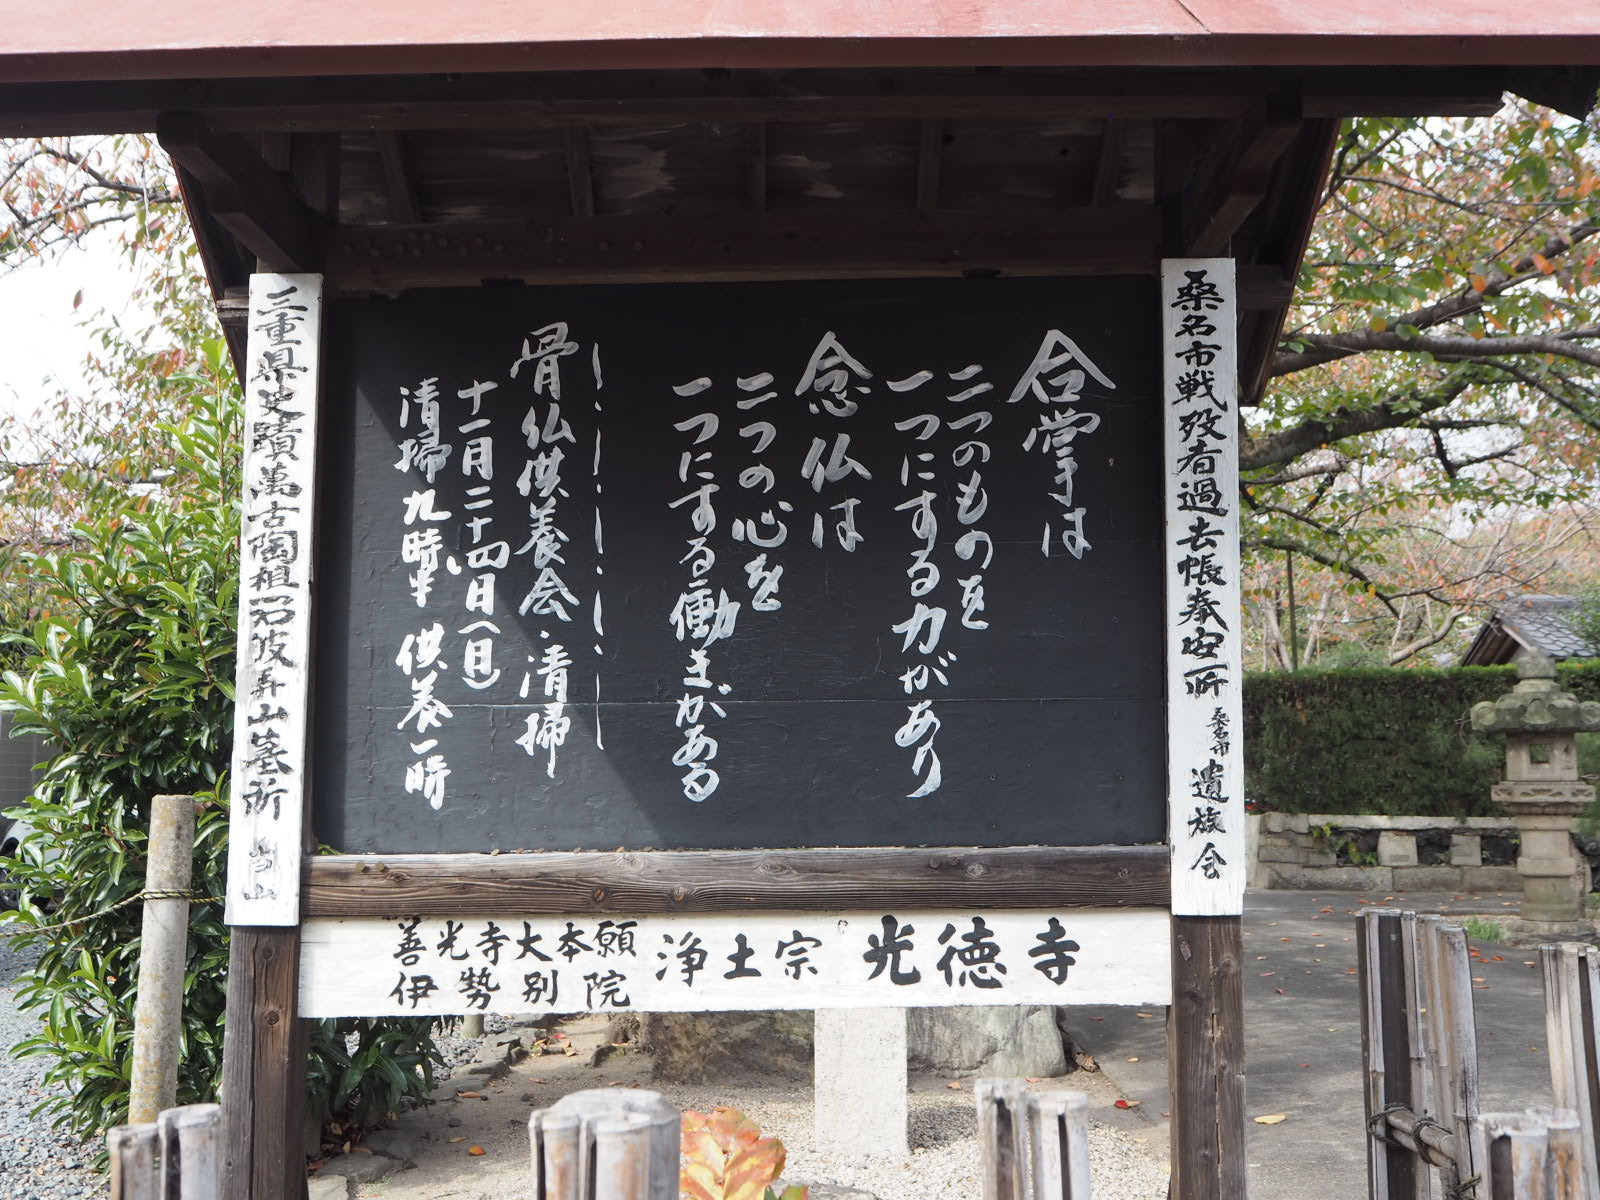 桑名市戦歿者過去帳奉安所 桑名市遺族会
合掌は
二つのものを
一つにする力があり
念仏は
二つの心を
一つにする働きがある
骨仏供養会・清掃
十一月二十四日(日)
清掃九時半 供養一時
三重県史蹟萬古陶祖沼波弄山墓所 当山
善光寺大本願
伊勢別院
浄土宗 光徳寺